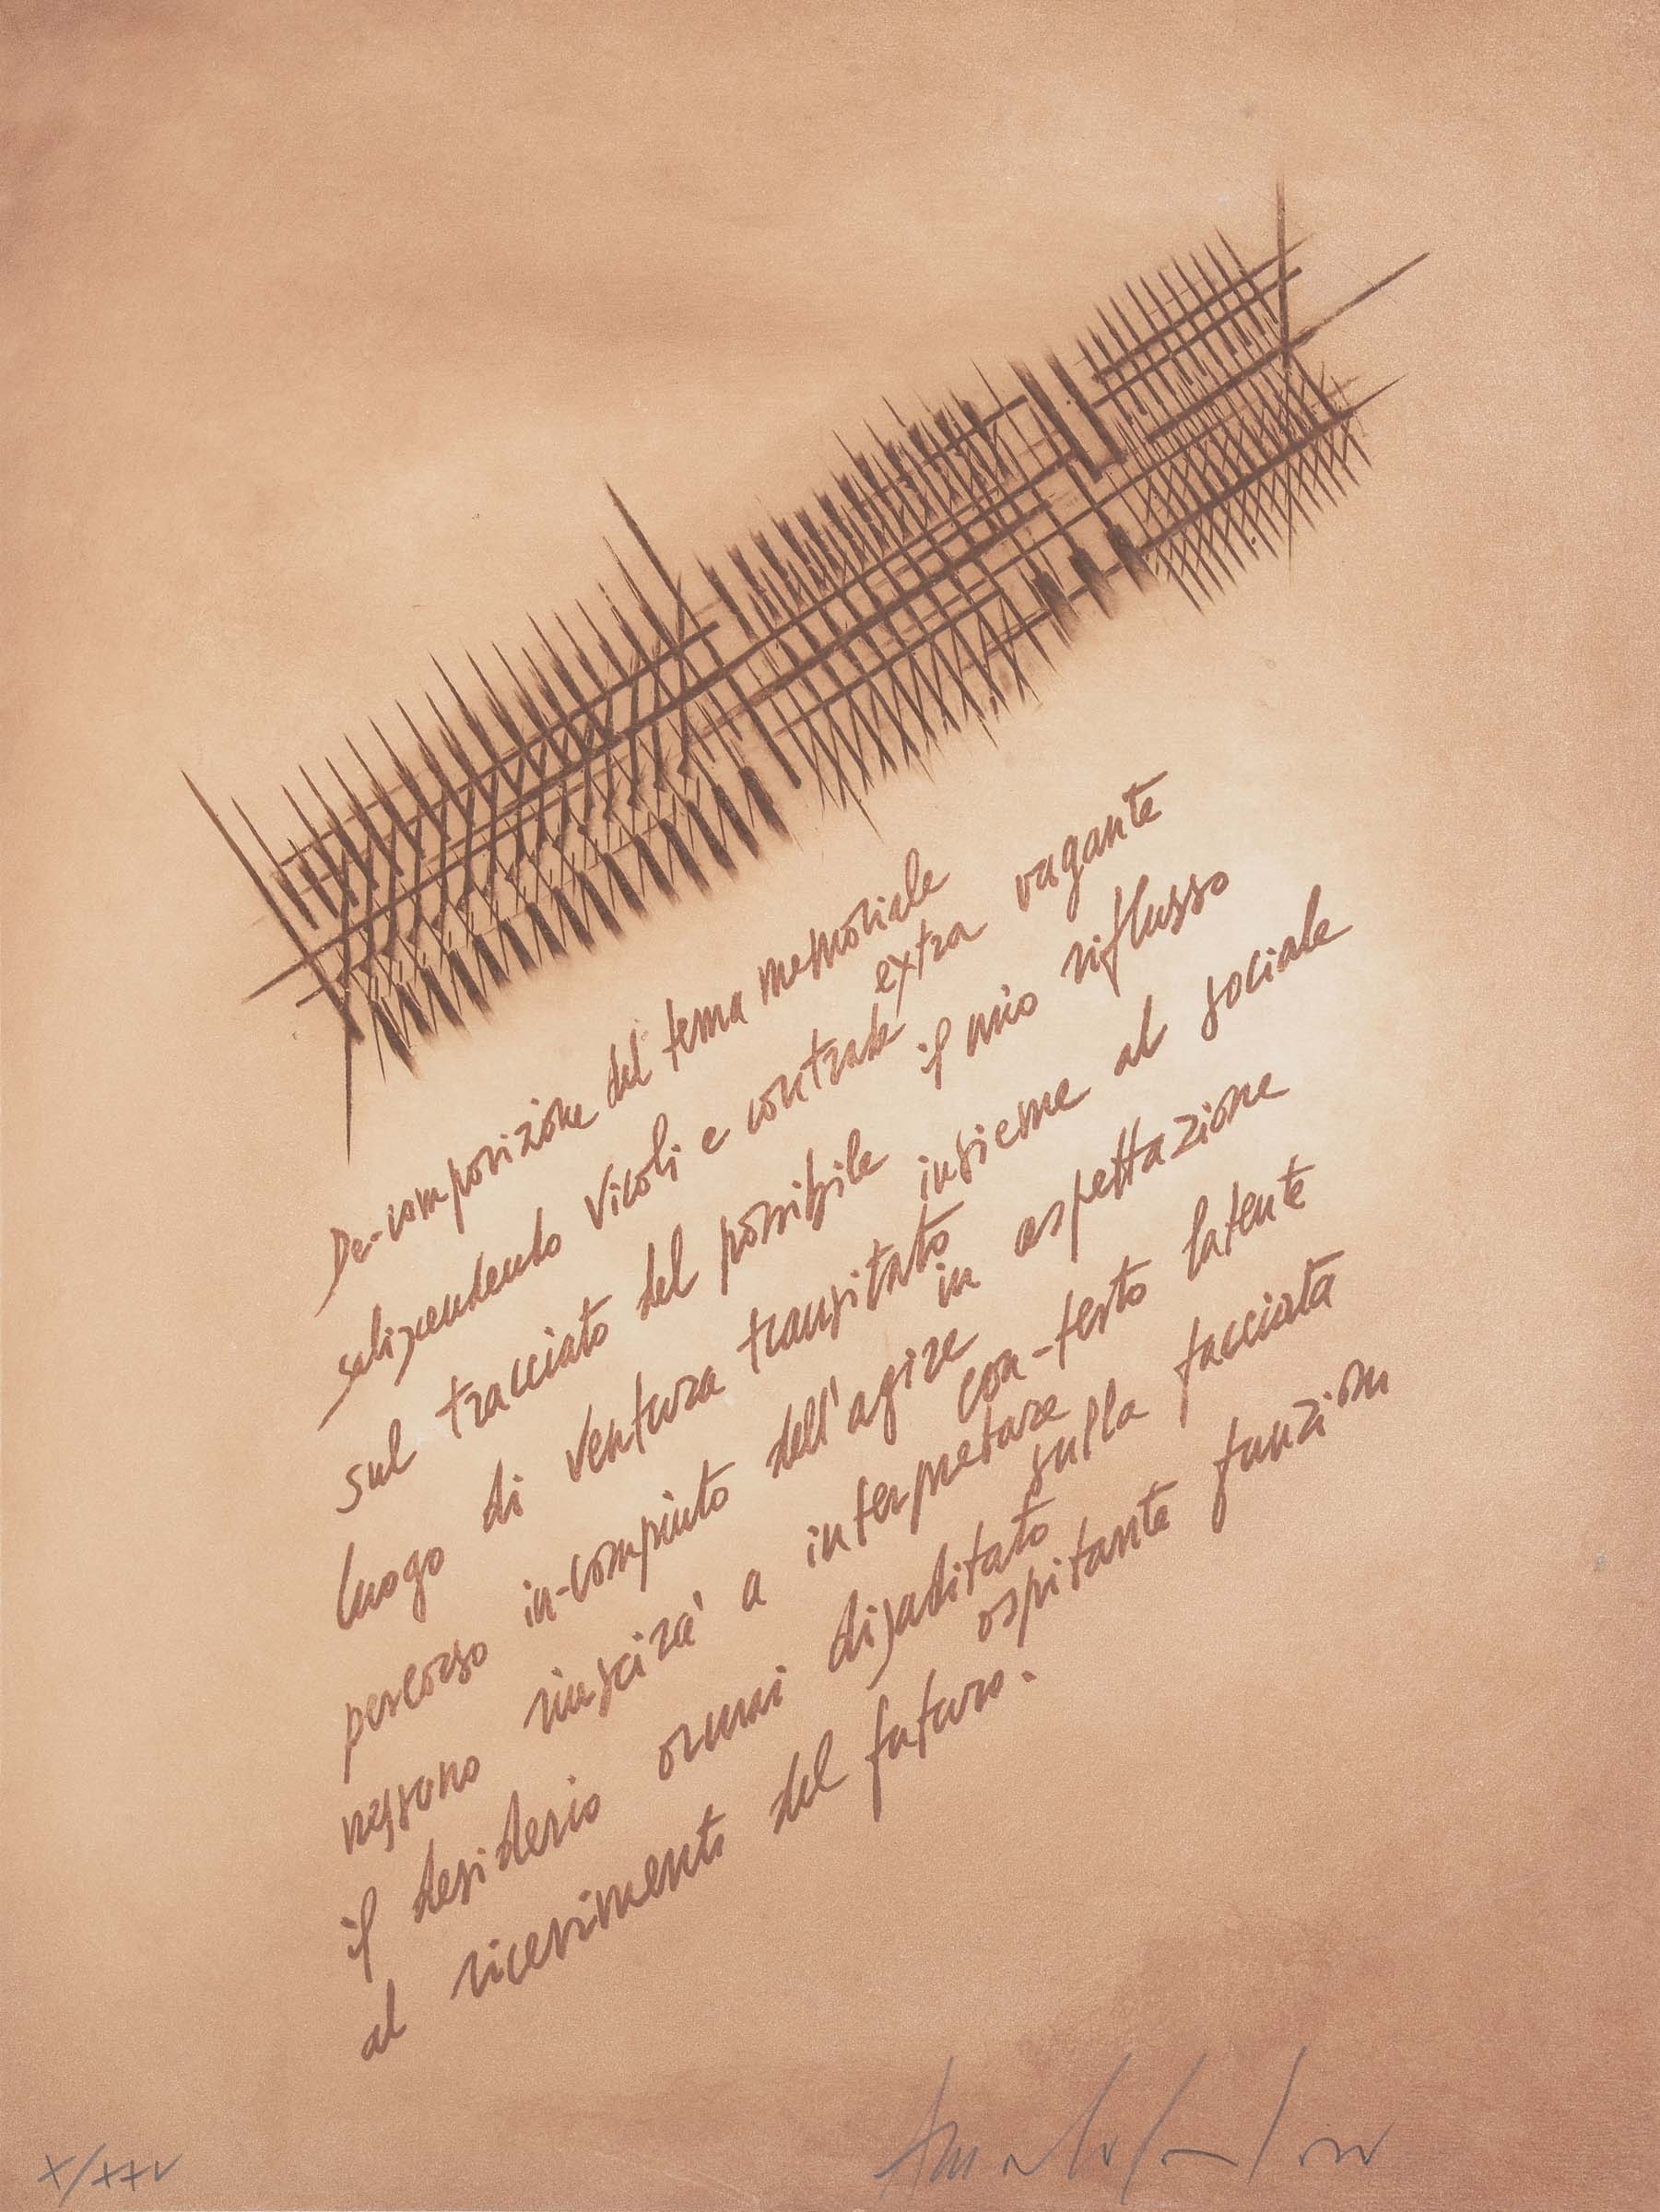 De-composizione del tema memoriale
saliscendendo vicoli e contrade extra vagante
sul tracciato del possibile il mio riflusso
luogo di ventura transitato insieme al sociale
percorso in-compiuto dell'agire in aspettazione
nessuno riuscirà a interpretare con-testo latente
il desiderio ormai disaditato sulla facciata
al ricevimento del futuro. ospitante funzioni
X/XXV